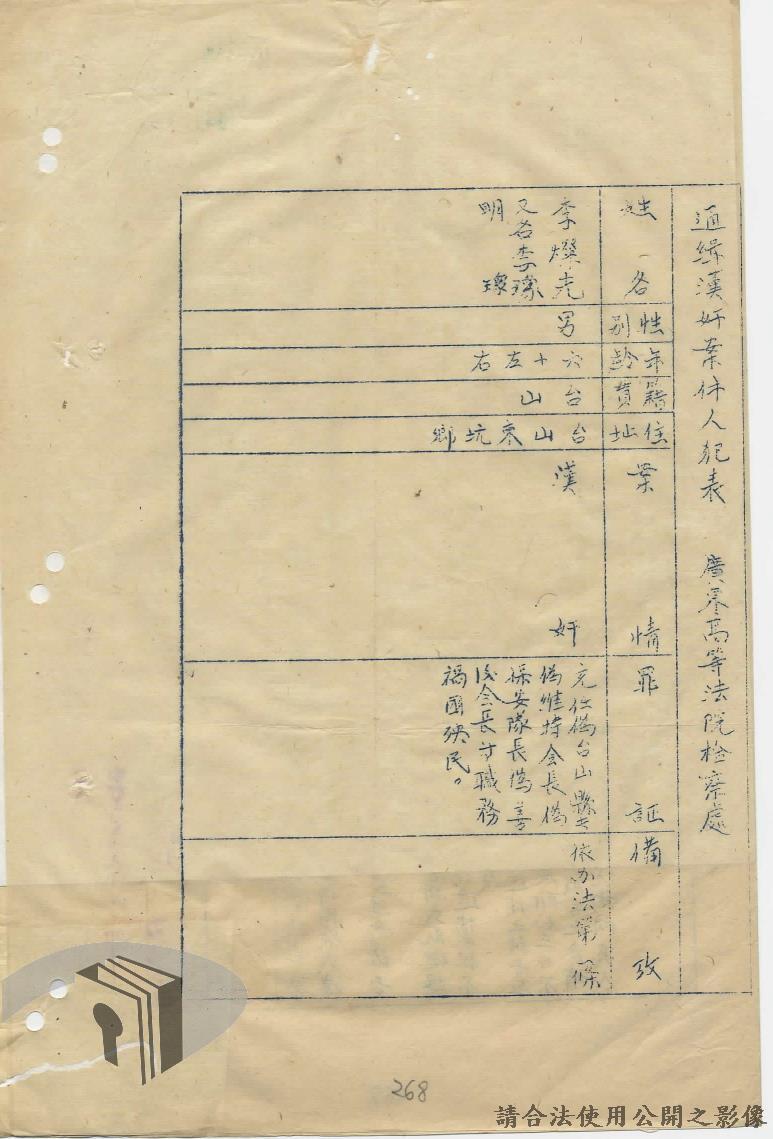 通緝漢奸案件人犯表 廣東高等法院檢察處
姓名
性別
年齡
籍貫
住址
案情
罪証
備攷
李燦光
又名李瓊
明 瓊
男
六十左右
台山
台山東坑鄉
漢奸
充任偽台山縣
偽維持会長偽
保安隊長偽善
后会長等職務
禍國殃民。
依办法第 條
268
請合法使用公開之影像